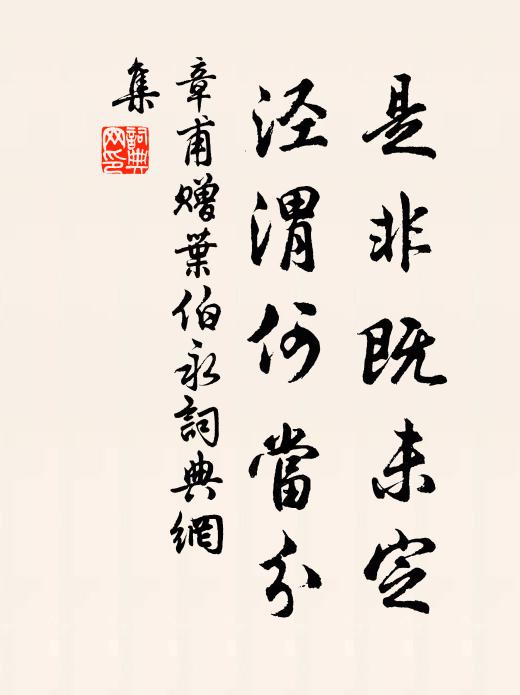 是非既未定
泾渭何當分
章甫贈葉伯永詞典網
集
詞典
网印